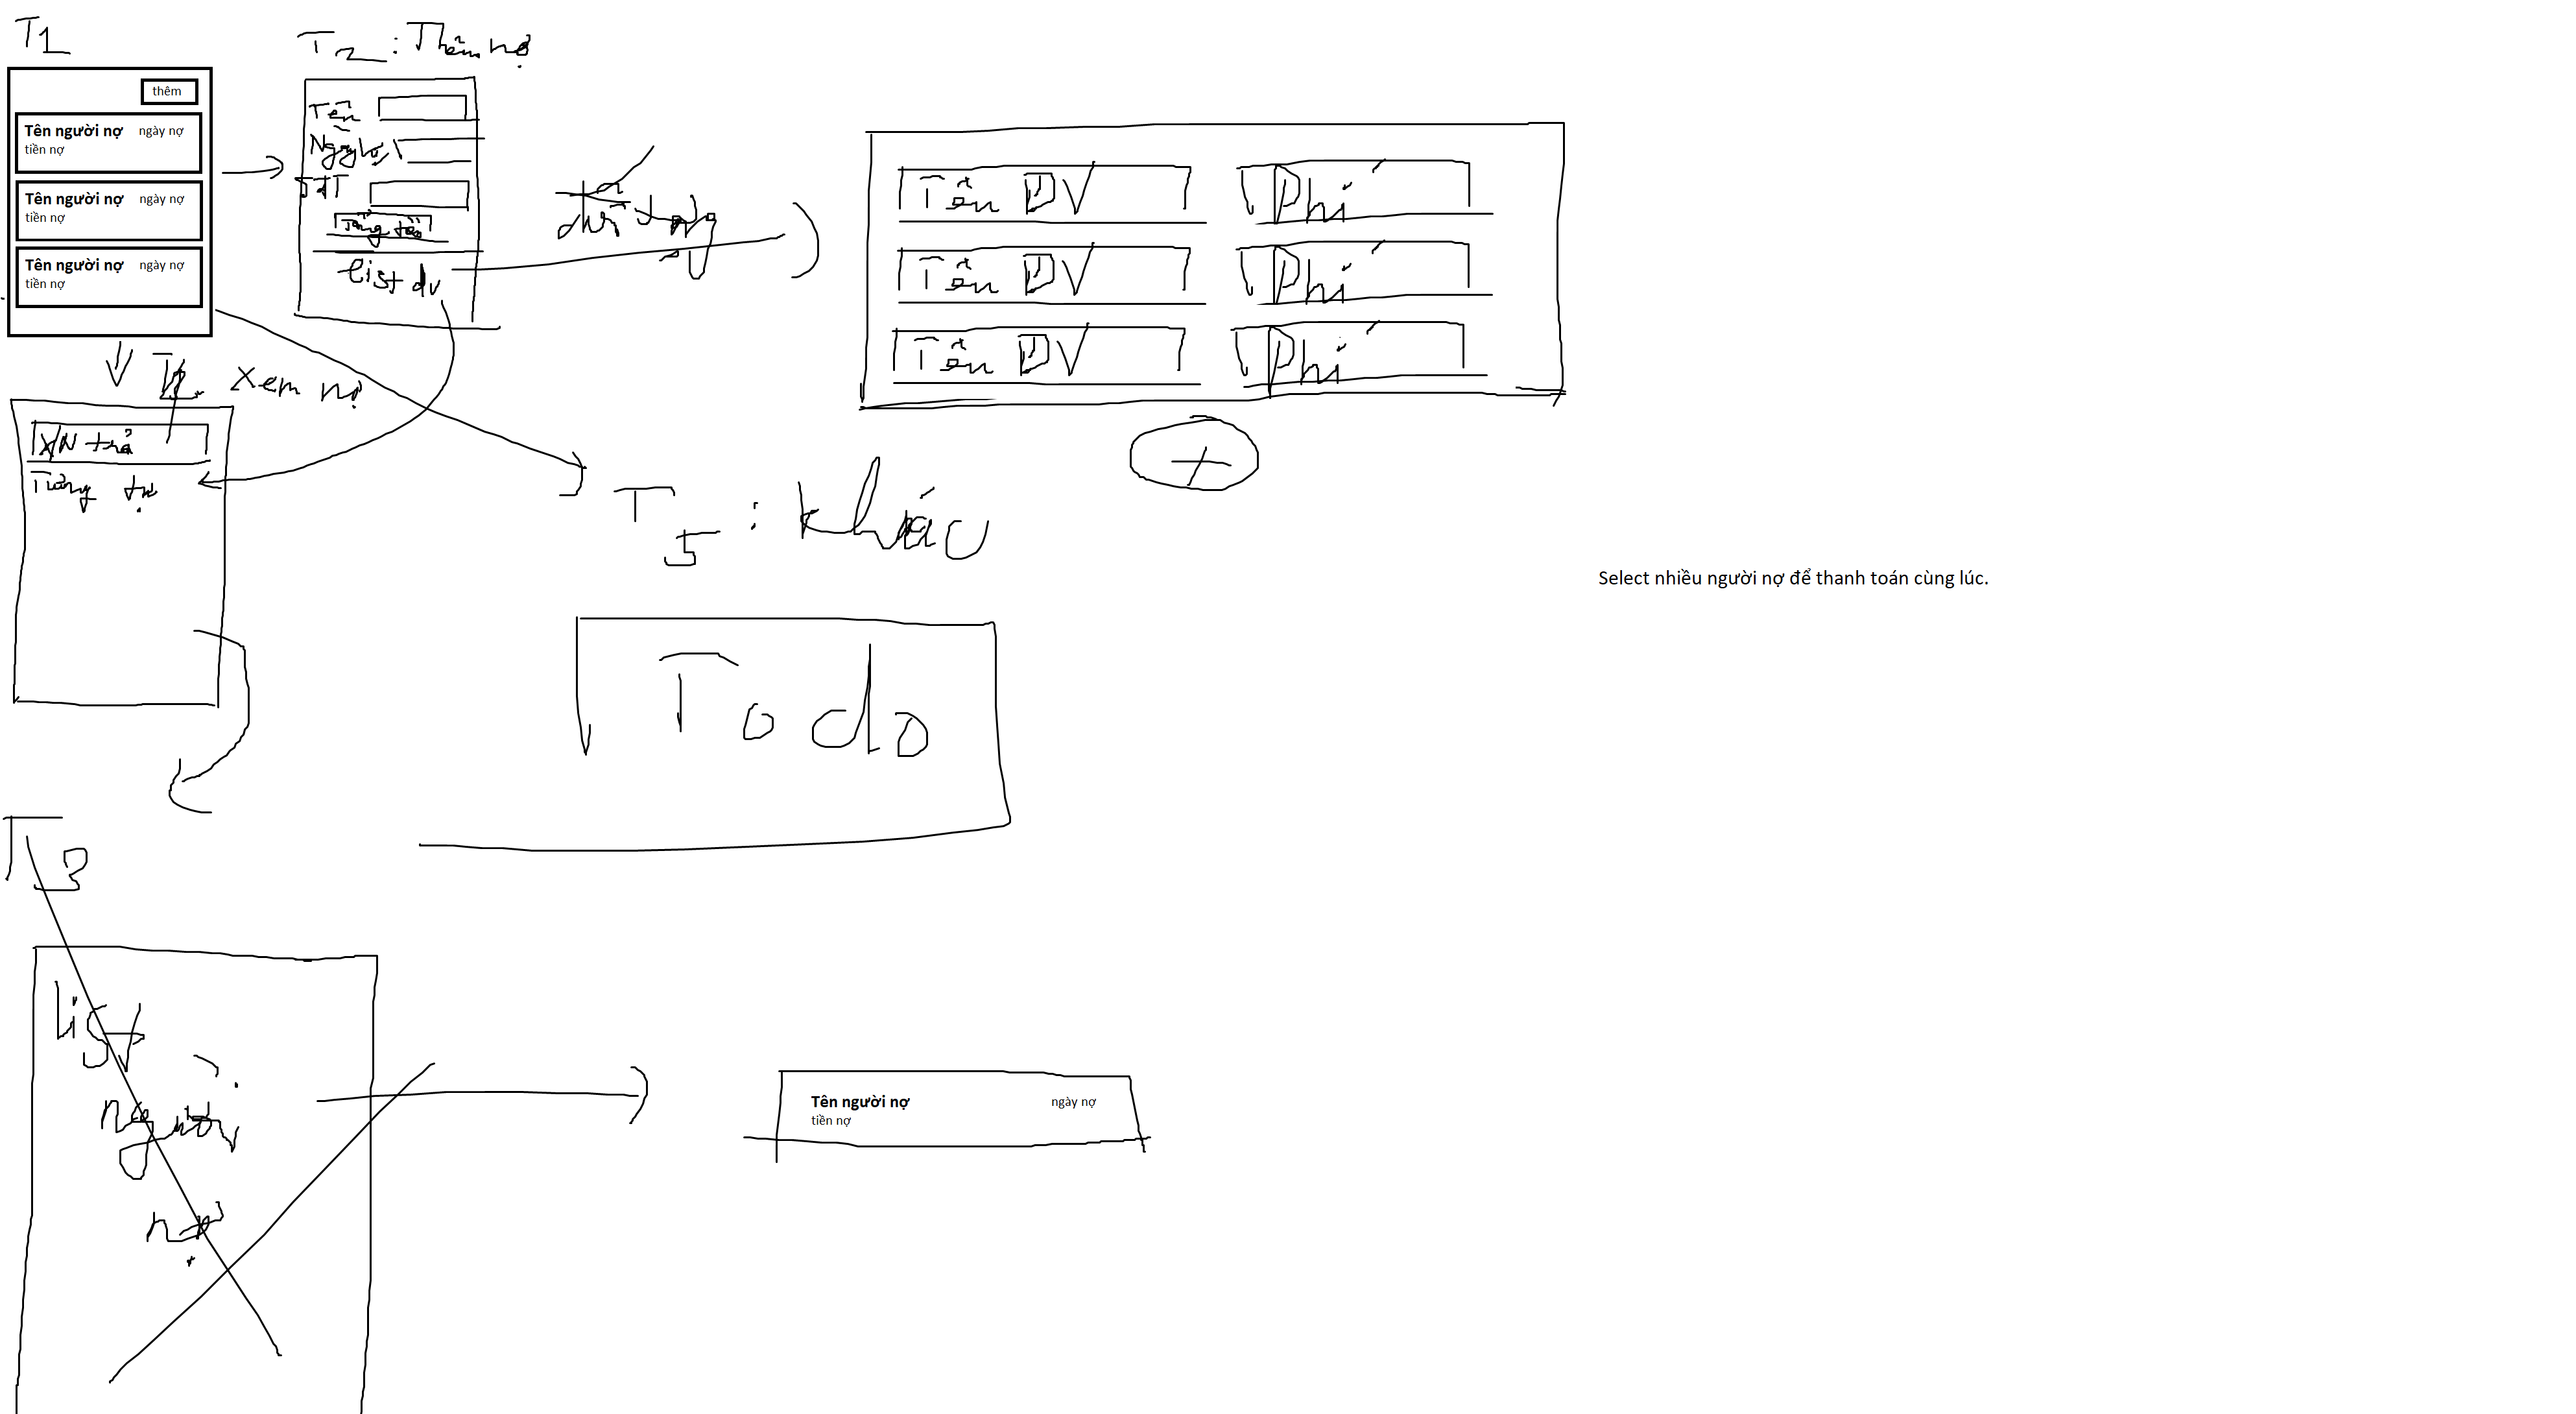 T1
thêm
Tên người nợ ngày nợ
tiền nợ
Tên người nợ ngày nợ
tiền nợ
Tên người nợ ngày nợ
tiền nợ
T2: Thêm nợ
Tên
SĐT
list dv
Tên DV Phí
Tên DV Phí
Tên DV Phí
+
Xem nợ
XN trả
Tương tự
T5: khác
Todo
Select nhiều người nợ để thanh toán cùng lúc.
T3
list
người
nợ
Tên người nợ ngày nợ
tiền nợ